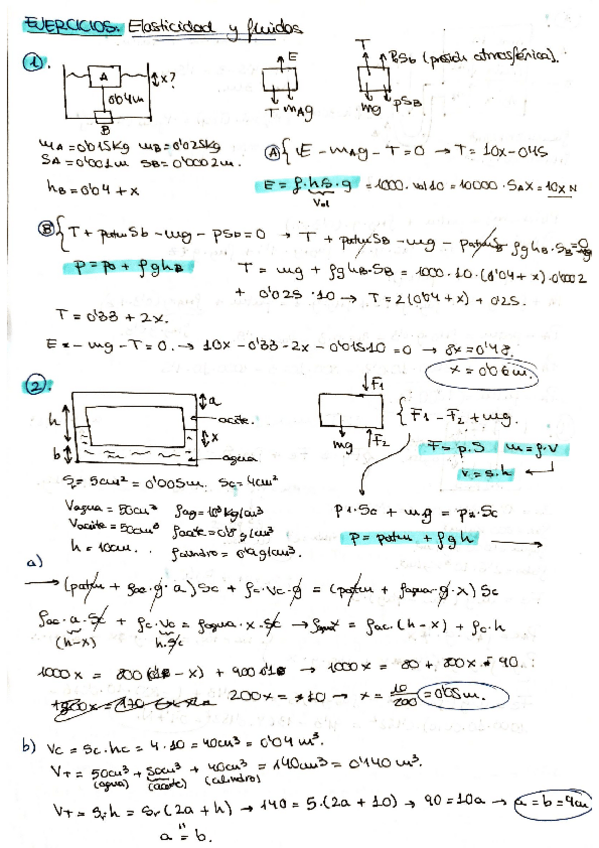 EJERCICIOS. Elasticidad y fluidos
1. A x? 0'04m B
E T mAg
T PSb (presión atmosférica). mg pSB
mA=0'015Kg mB=0'025Kg
SA=0'001m SB=0'0002m.
hB=0'04+x
A { E-mAg-T=0 → T=10x-0'15
E = ρ.hS.g = 1000.vol 10 = 10000.SAX = 10x N
Vol
B { T+patmSb-mg-pSb=0 → T+patmSB-mg-patmSB ρghB.SB=0
p = p0 + ρghB
T = mg + ρghB.SB = 1000.10.(0'04+x).0'0002
+ 0'025.10 → T=2(0'04+x)+0'25.
T=0'33+2x.
E-mg-T=0. → 10x-0'33-2x-0'015·10=0 → 8x=0'48.
x=0'06m.
2. h b a aceite. x agua
F1 mg F2
{ F1-F2+mg.
F=p.S m=ρ.V
V=s.h
S=5cm²=0'005m. Sc=4cm²
Vagua=50cm³ ρag=10³Kg/cm³
Vaceite=50cm³ ρaceite=0'8g/cm³
h=10cm. ρcilindro=0'9g/cm³.
p1.Sc + mg = p2.Sc
p=patm + ρgh →
a)
→ (patm + ρac.g.a)Sc + ρc.Vc.g = (patm + ρagua.g.x)Sc
ρac.a.Sc + ρc.Vc = ρagua.x.Sc → ρagua x = ρac.(h-x) + ρc.h
(h-x) h.Sc
1000x = 800(0'1-x) + 900 0'1 → 1000x = 80 + 800x + 90.
200x = 10 → x = 10/200 = 0'05m.
b) Vc = Sc.hc = 4.10 = 40cm³ = 0'04m³.
VT = 50cm³ + 50cm³ + 40cm³ = 140cm³ = 0'140m³.
(agua) (aceite) (cilindro)
VT = S.h = Sr(2a+h) → 140 = 5.(2a+10) → 90 = 10a → a=b=9cm
a = b.